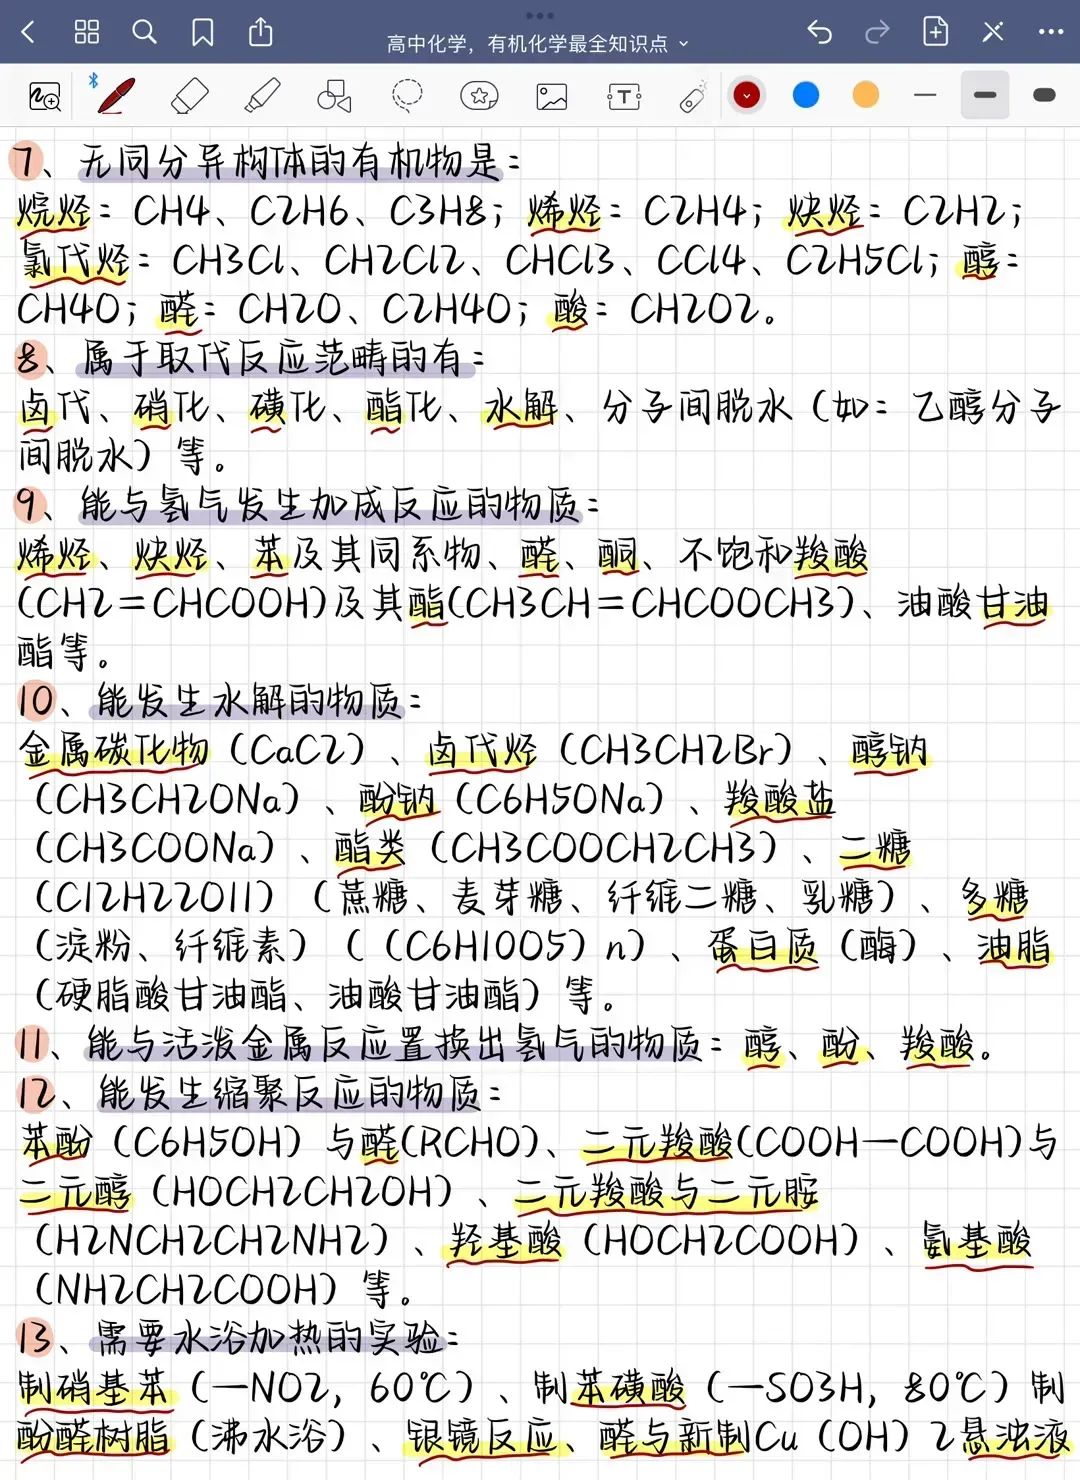 高中化学，有机化学最全知识点
7、无同分异构体的有机物是：
烷烃：CH4、C2H6、C3H8；烯烃：C2H4；炔烃：C2H2；
氯代烃：CH3Cl、CH2Cl2、CHCl3、CCl4、C2H5Cl；醇：
CH4O；醛：CH2O、C2H4O；酸：CH2O2。
8、属于取代反应范畴的有：
卤代、硝化、磺化、酯化、水解、分子间脱水（如：乙醇分子
间脱水）等。
9、能与氢气发生加成反应的物质：
烯烃、炔烃、苯及其同系物、醛、酮、不饱和羧酸
(CH2＝CHCOOH)及其酯(CH3CH＝CHCOOCH3)、油酸甘油
酯等。
10、能发生水解的物质：
金属碳化物（CaC2）、卤代烃（CH3CH2Br）、醇钠
（CH3CH2ONa）、酚钠（C6H5ONa）、羧酸盐
（CH3COONa）、酯类（CH3COOCH2CH3）、二糖
（C12H22O11）（蔗糖、麦芽糖、纤维二糖、乳糖）、多糖
（淀粉、纤维素）（（C6H10O5）n）、蛋白质（酶）、油脂
（硬脂酸甘油酯、油酸甘油酯）等。
11、能与活泼金属反应置换出氢气的物质：醇、酚、羧酸。
12、能发生缩聚反应的物质：
苯酚（C6H5OH）与醛(RCHO)、二元羧酸(COOH—COOH)与
二元醇（HOCH2CH2OH）、二元羧酸与二元胺
（H2NCH2CH2NH2）、羟基酸（HOCH2COOH）、氨基酸
（NH2CH2COOH）等。
13、需要水浴加热的实验：
制硝基苯（—NO2，60℃）、制苯磺酸（—SO3H，80℃）制
酚醛树脂（沸水浴）、银镜反应、醛与新制Cu（OH）2悬浊液